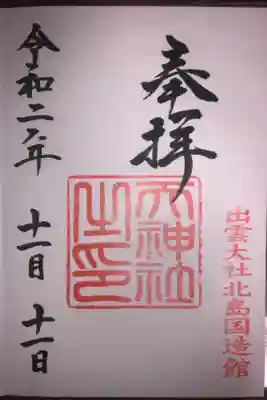 出雲大社北島国造館
奉拝
天神社之印
令和二年 十一月 十一日